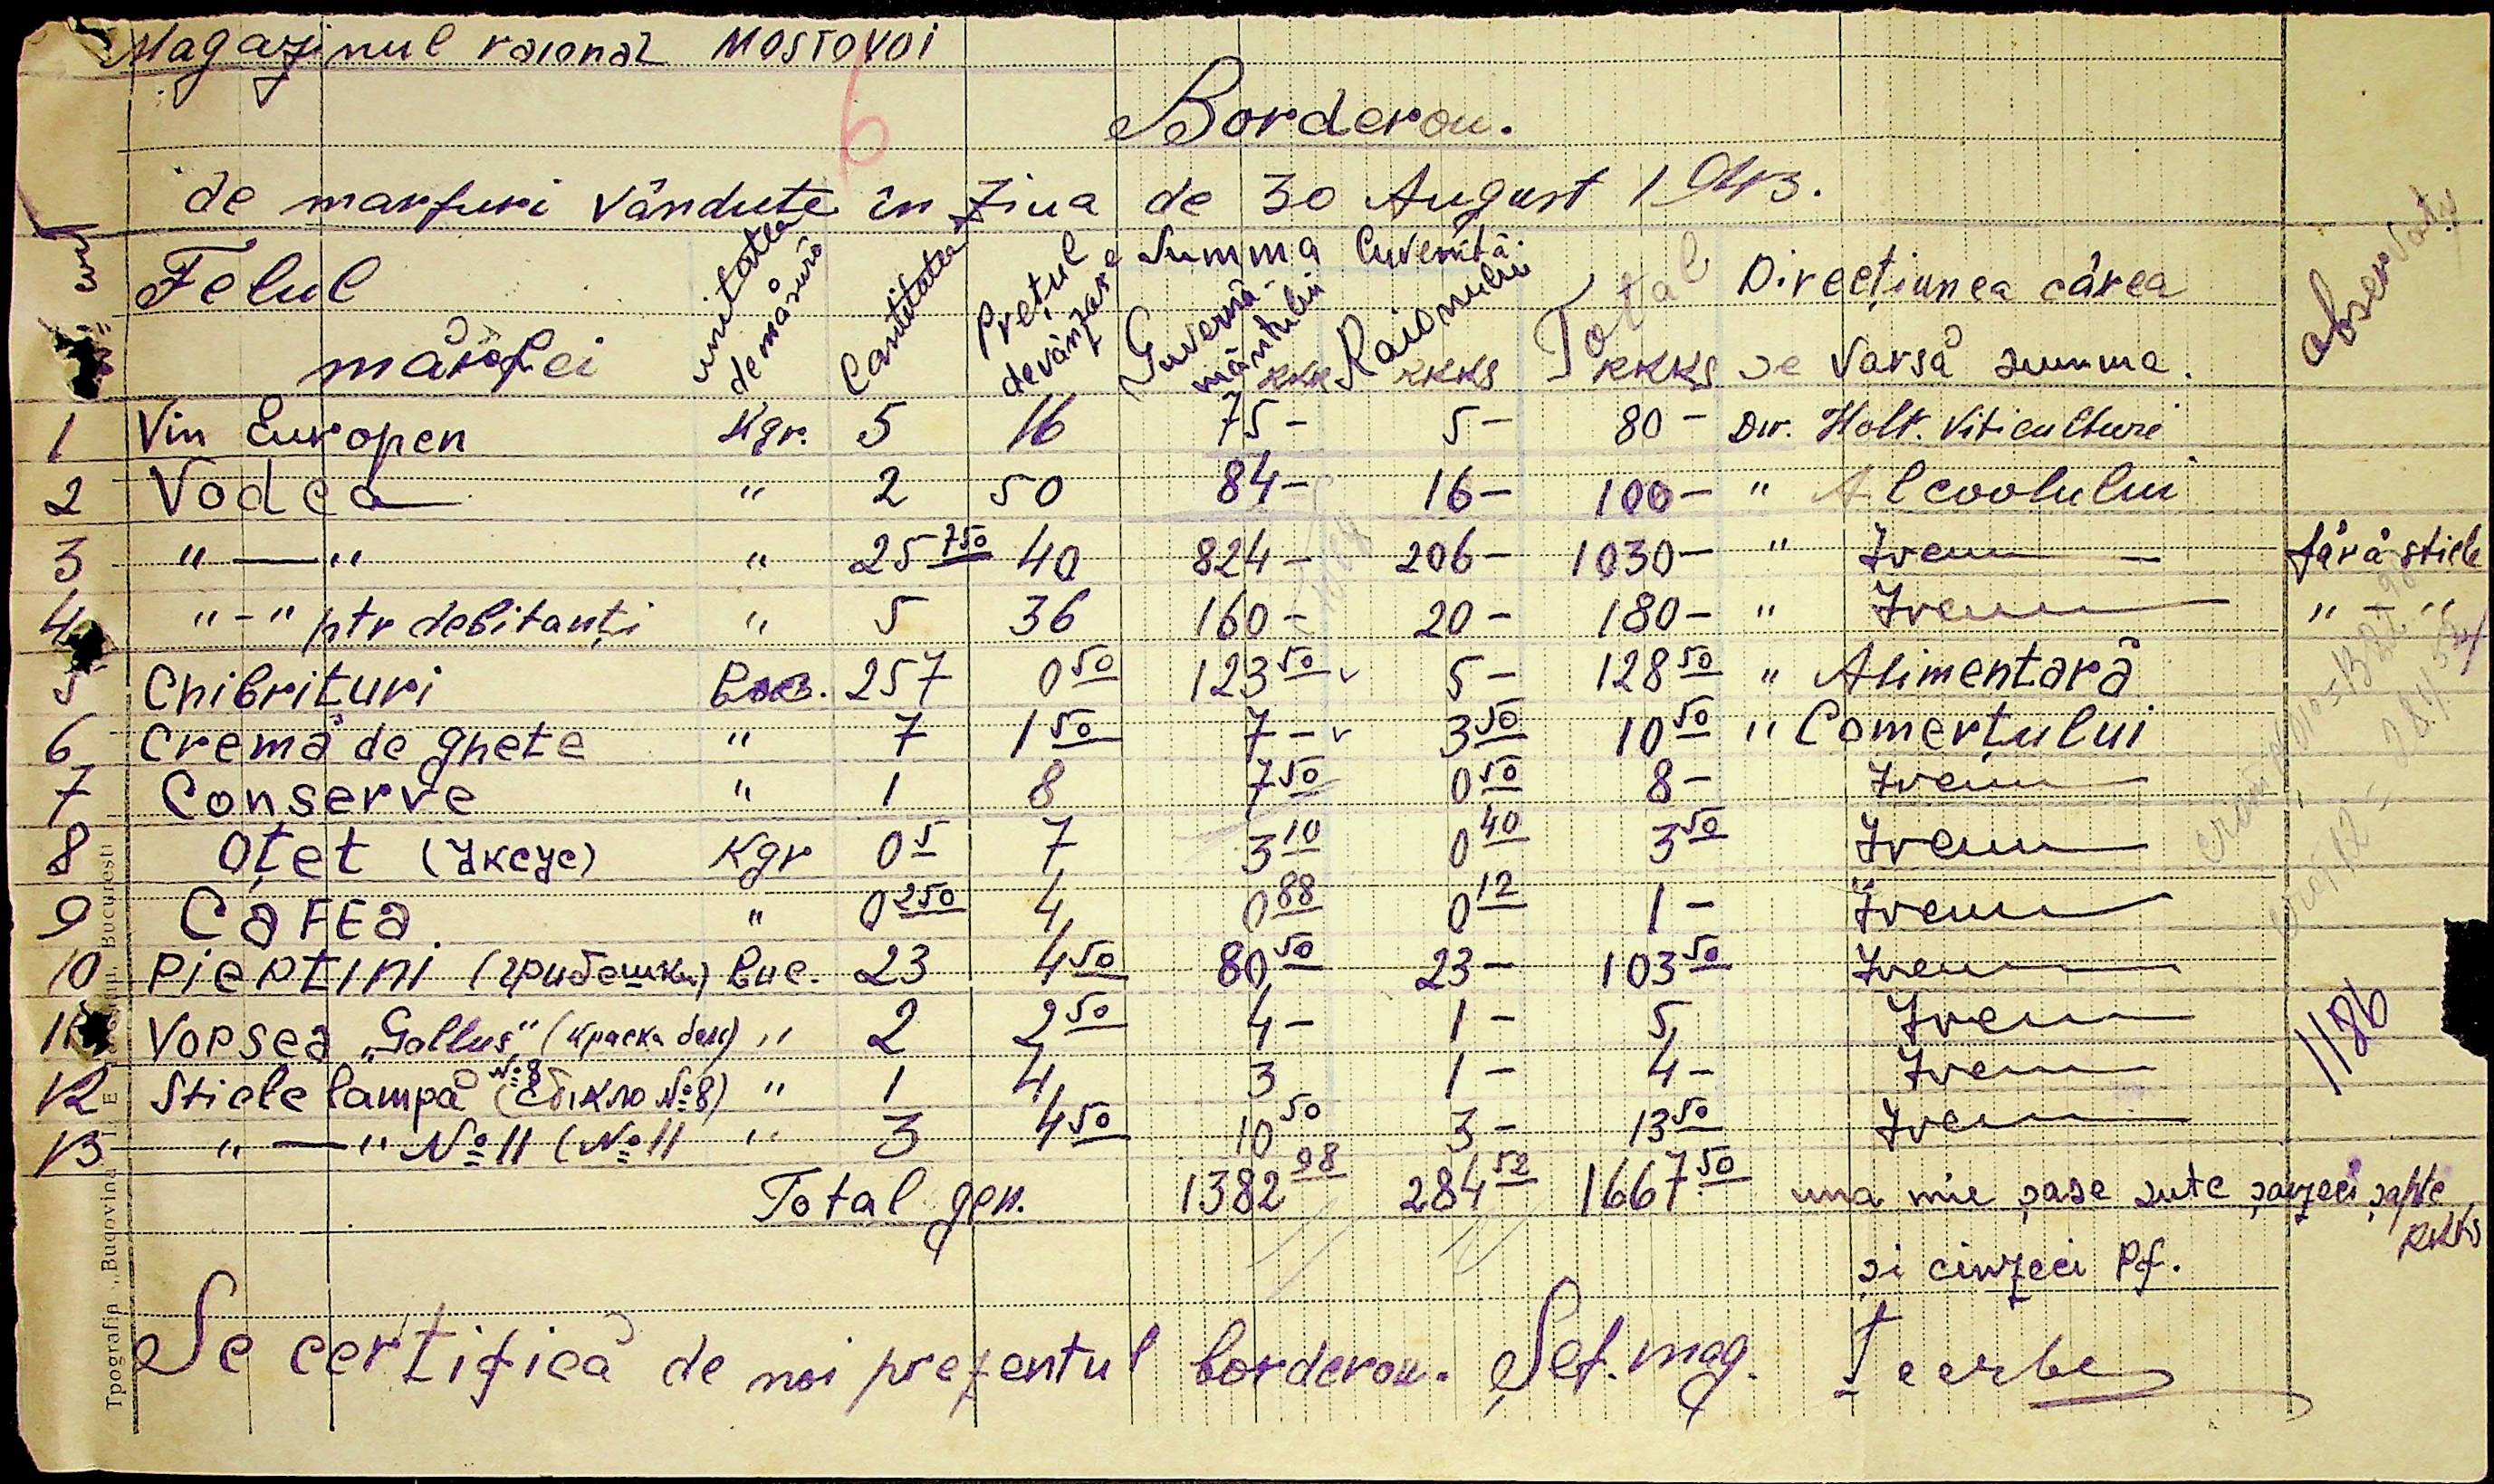 Magazinul raional MOSTOVOI
6
Borderou.
de marfuri vândute în ziua de 30 August 1943.
Felul mărfei unitatea de măsură Cantitatea Prețul de vânzare Summa Cuvenită Total Direcțiunea cărea
Guvernământului KKK Raionului KKKS KKKS se varsă summa.
1 Vin European Kgr. 5 16 75- 5- 80- Dir. Holt. Viticulturei
2 Vodca " 2 50 84- 16- 100- " Alcoolului
3 "—" " 25 750 40 824- 206- 1030- " Idem — fără sticle
4 "-" ptr debitanți " 5 36 160- 20- 180- " Idem " - "
5 Chibrituri Buc. 257 0 50 123 50 5- 128 50 " Alimentară
6 Cremă de ghete " 7 1 50 7- 3 50 10 50 " Comerțului
7 Conserve " 1 8 7 50 0 50 8- Idem
8 Oțet (Уксус) Kgr 0 5 7 3 10 0 40 3 50 Idem
9 CaFEa " 0 250 4 0 88 0 12 1- Idem
10 Pieptini (грибешки) Buc. 23 4 50 80 50 23- 103 50 Idem
11 Vopsea "Gallus" (краска " 2 2 50 4- 1- 5 Idem
12 Sticle lampă № 8 (стікло № 8) " 1 4 3 1- 4- Idem
13 "—" № 11 (№ 11 " 3 4 50 10 50 3- 13 50 Idem
1186
Total gen. 1382 98 284 52 1667 50 una mie șase sute șaizeci șapte
KKKS
și cinzeci Pf.
Se certifică de noi prezentul borderou. Șef. mag.
Tpografia „Bucovina" I. E. București